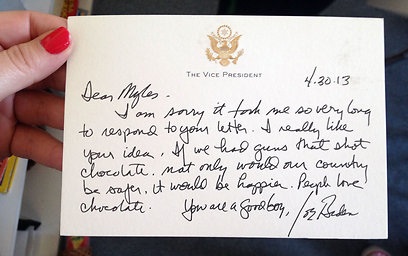 THE VICE PRESIDENT
4.30.13
Dear Myles.
I am sorry it took me so very long
to respond to your letter. I really like
your idea. If we had guns that shot
chocolate. not only would our country
be safer, it would be happier. People love
chocolate. You are a good boy, Joe Biden